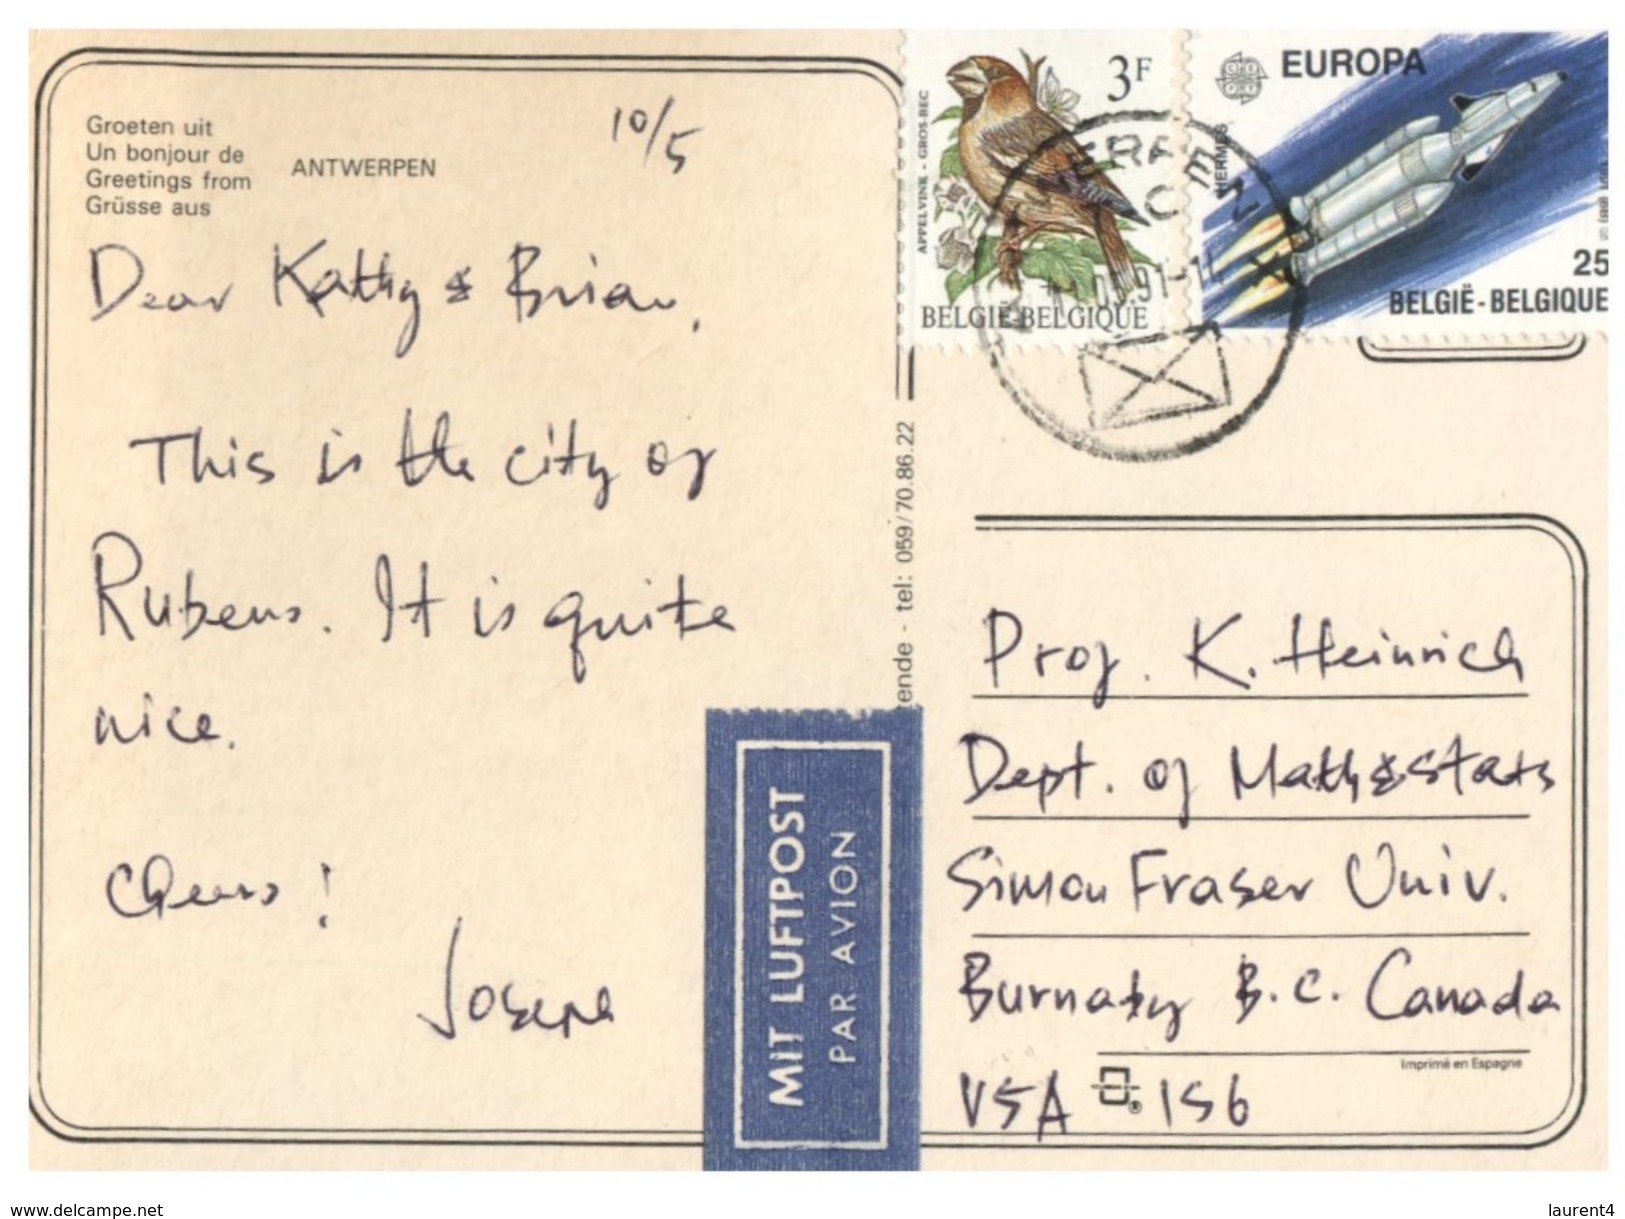 Groeten uit
Un bonjour de
Greetings from
Grüsse aus
ANTWERPEN
10/5
Dear Kathy & Brian,
This is the city of
Rubens. It is quite
nice.
Cheers!
Joseph
APPELVINK - GROS-BEC
3F
BELGIË-BELGIQUE
EUROPA
HERMES
25
BELGIË - BELGIQUE
ende - tel: 059/70.86.22
MIT LUFTPOST
PAR AVION
Prof. K. Heinrich
Dept. of Math & Stats
Simon Fraser Univ.
Burnaby B.C. Canada
V5A 1S6
Imprimé en Espagne
www.delcampe.net
laurent4